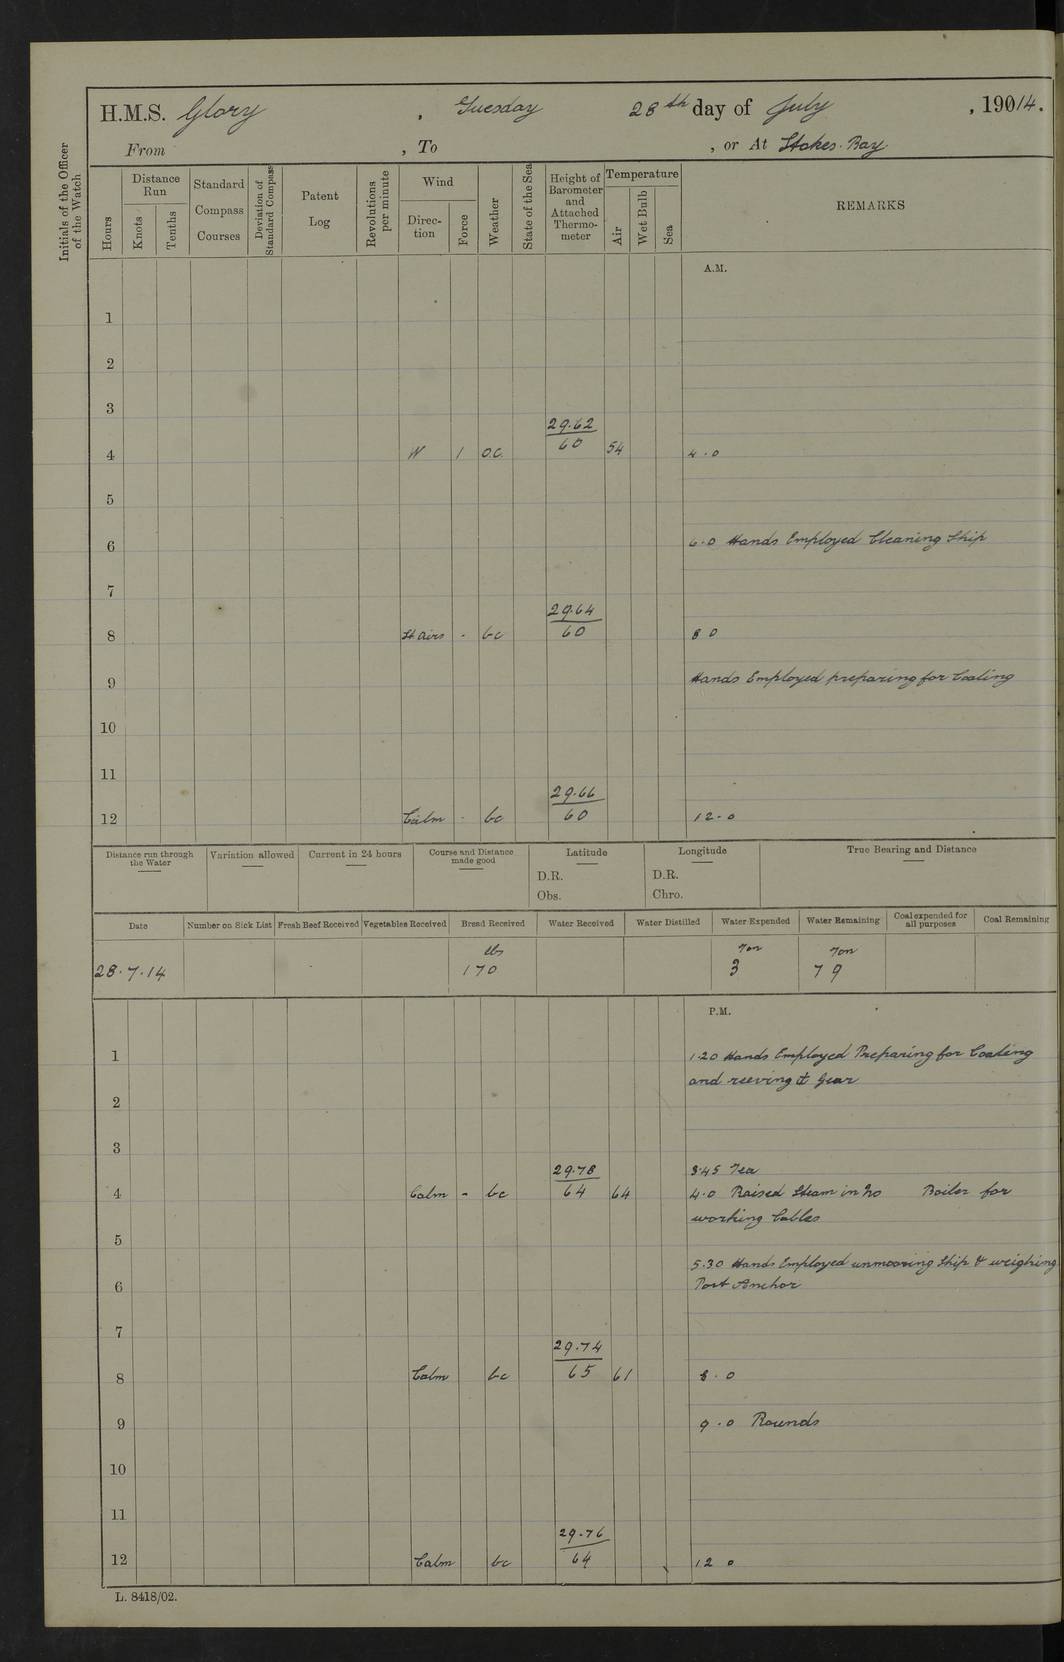 H.M.S. Glory, Tuesday 28th day of July, 19014.
From , To , or At Stokes Bay
Initials of the Officer of the Watch
Hours
Distance Run
Knots
Tenths
Standard Compass Courses
Deviation of Standard Compass
Patent Log
Revolutions per minute
Wind
Direc-tion
Force
Weather
State of the Sea
Height of Barometer and Attached Thermo-meter
Temperature
Air
Wet Bulb
Sea
REMARKS
A.M.
1
2
3
29.62
4 W 1 oc 60 54 4.0
5
6 6.0 Hands Employed Cleaning Ship
7
29.64
8 Lt Airs - bc 60 8 0
9 Hands Employed preparing for Coaling
10
11
29.66
12 Calm - bc 60 12.0
Distance run through the Water
Variation allowed
Current in 24 hours
Course and Distance made good
Latitude
D.R.
Obs.
Longitude
D.R.
Chro.
True Bearing and Distance
Date Number on Sick List Fresh Beef Received Vegetables Received Bread Received Water Received Water Distilled Water Expended Water Remaining Coal expended for all purposes Coal Remaining
lbs Ton Ton
28.7.14 170 3 79
P.M.
1 1.20 Hands Employed Preparing for Coaling
and reeving gear
2
3
29.78 3.45 Tea
4 Calm - bc 64 64 4.0 Raised Steam in No Boiler for
working Cables
5
5.30 Hands Employed unmooring Ship & weighing
6 Port Anchor
7
29.74
8 Calm bc 65 61 8.0
9 9.0 Rounds
10
11
29.76
12 Calm bc 64 12 0
L. 8418/02.